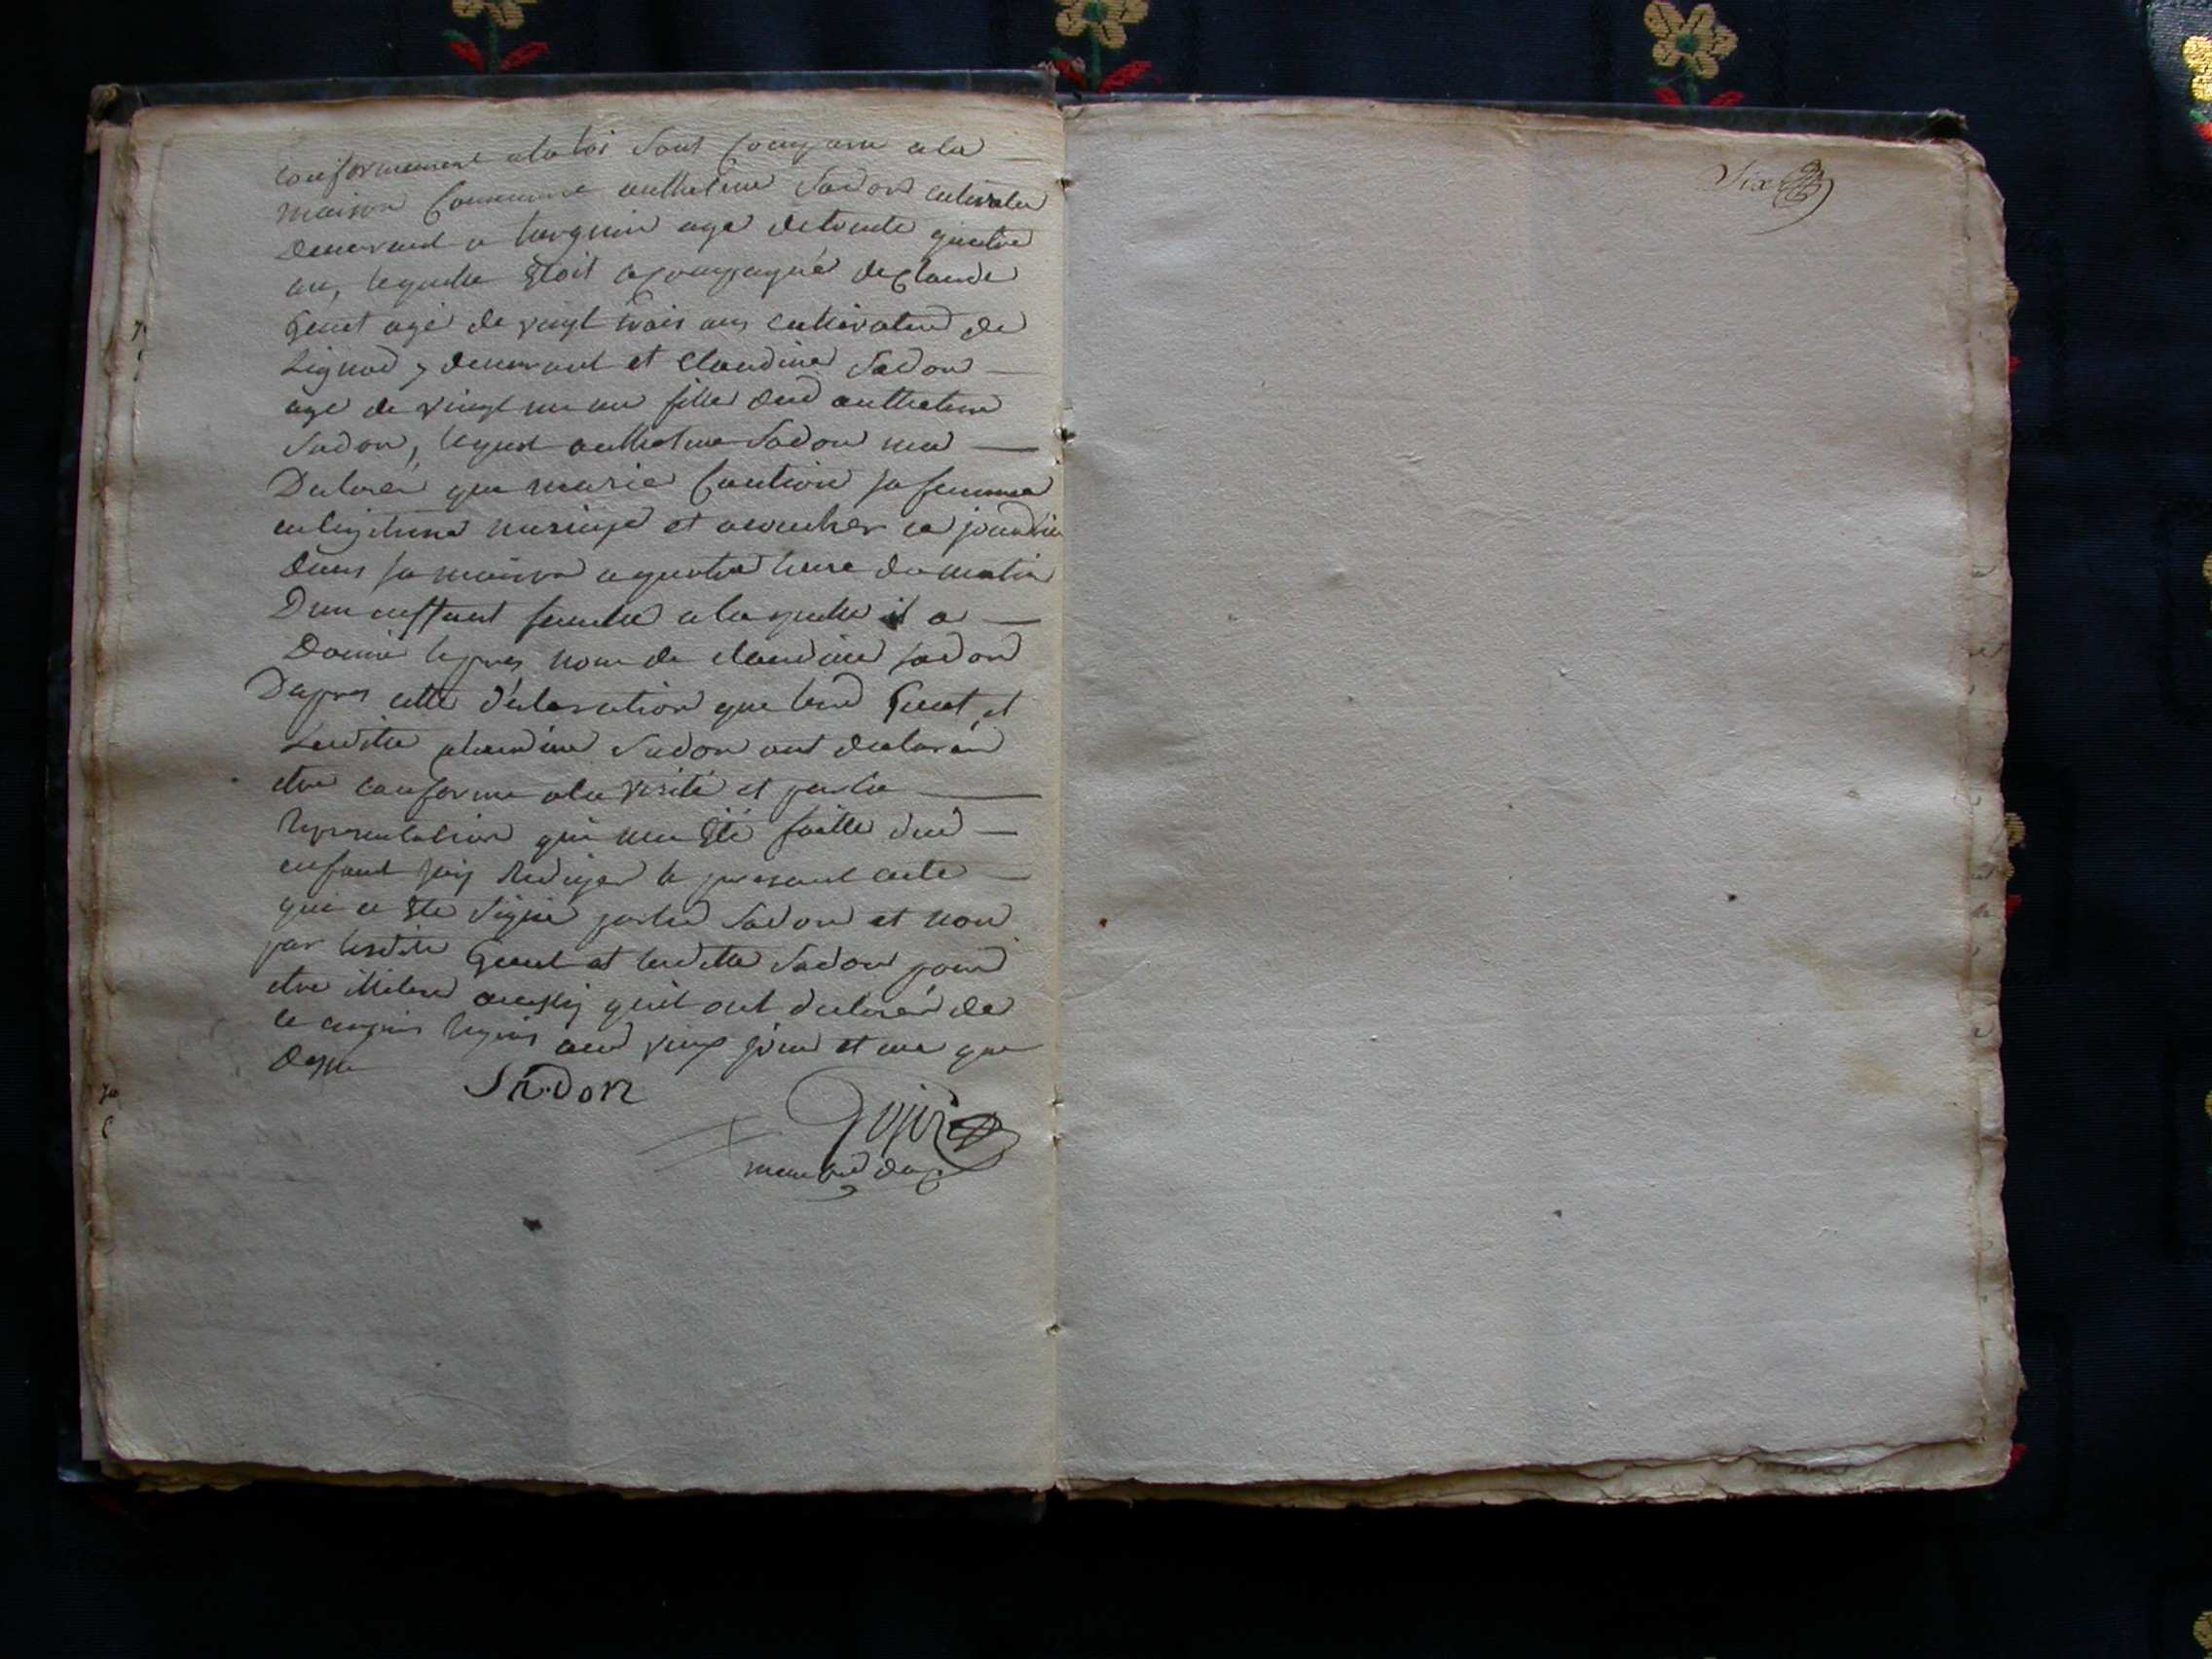 conformement ala loi sont comparu ala
maison Commune anthelme Sadon cultivateur
demeurant a age de trente quatre
ans, lequelle Etoit acompagné de Claude
Genet agé de vingt trois ans cultivateur de
Lignod y demeurant et Claudine Sadon
age de vingt un an fille dud anthelme
Sadon, lequel anthelme Sadon ma
Declarer que marie sa femme
en legitime mariage et acoucher ce jourdhui
dans sa maison a quatre heure du matin
Dun enffant femelle a laquelle il a
Donné le pres nom de claudine Sadon
Dapres cette déclaration que led Genet et
Laditte claudine Sadon ont declarér
etre conforme ala verité et par la
representation qui ma Eté faitte dud
enfant jais Rediger le present acte
qui a Ete Signé par led Sadon et non
par ledite Genet et laditte Sadon pour
etre illitere quil ont declarér de
ce requis aud jour et an que
dessus
SADON
membre
Six